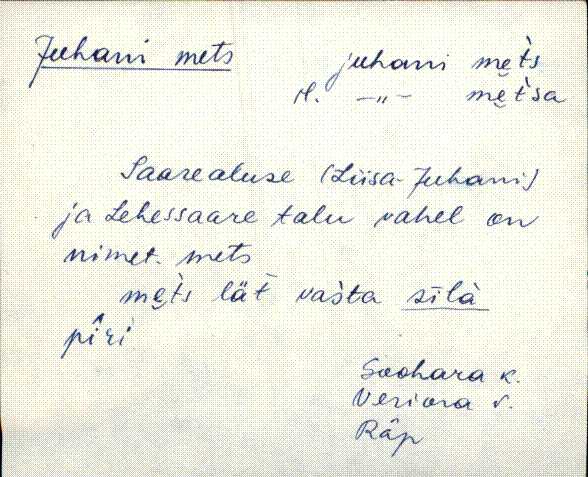 Juhani mets juhani me̬t̀s
H. –„– me̬t̀sa
Saarealuse (Liisa-Juhani)
ja Lehessaare talu vahel on
nimet. mets
me̬t̀s lät̀ vaśta sīlà
pîri
Soohara k.
Veriora v.
Räp